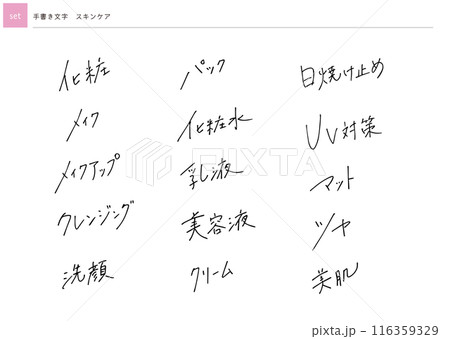 set 手書き文字 スキンケア
化粧
メイク
メイクアップ
クレンジング
洗顔
パック
化粧水
乳液
美容液
クリーム
日焼け止め
UV対策
マット
ツヤ
美肌
PIXTA
pixta.jp - 116359329